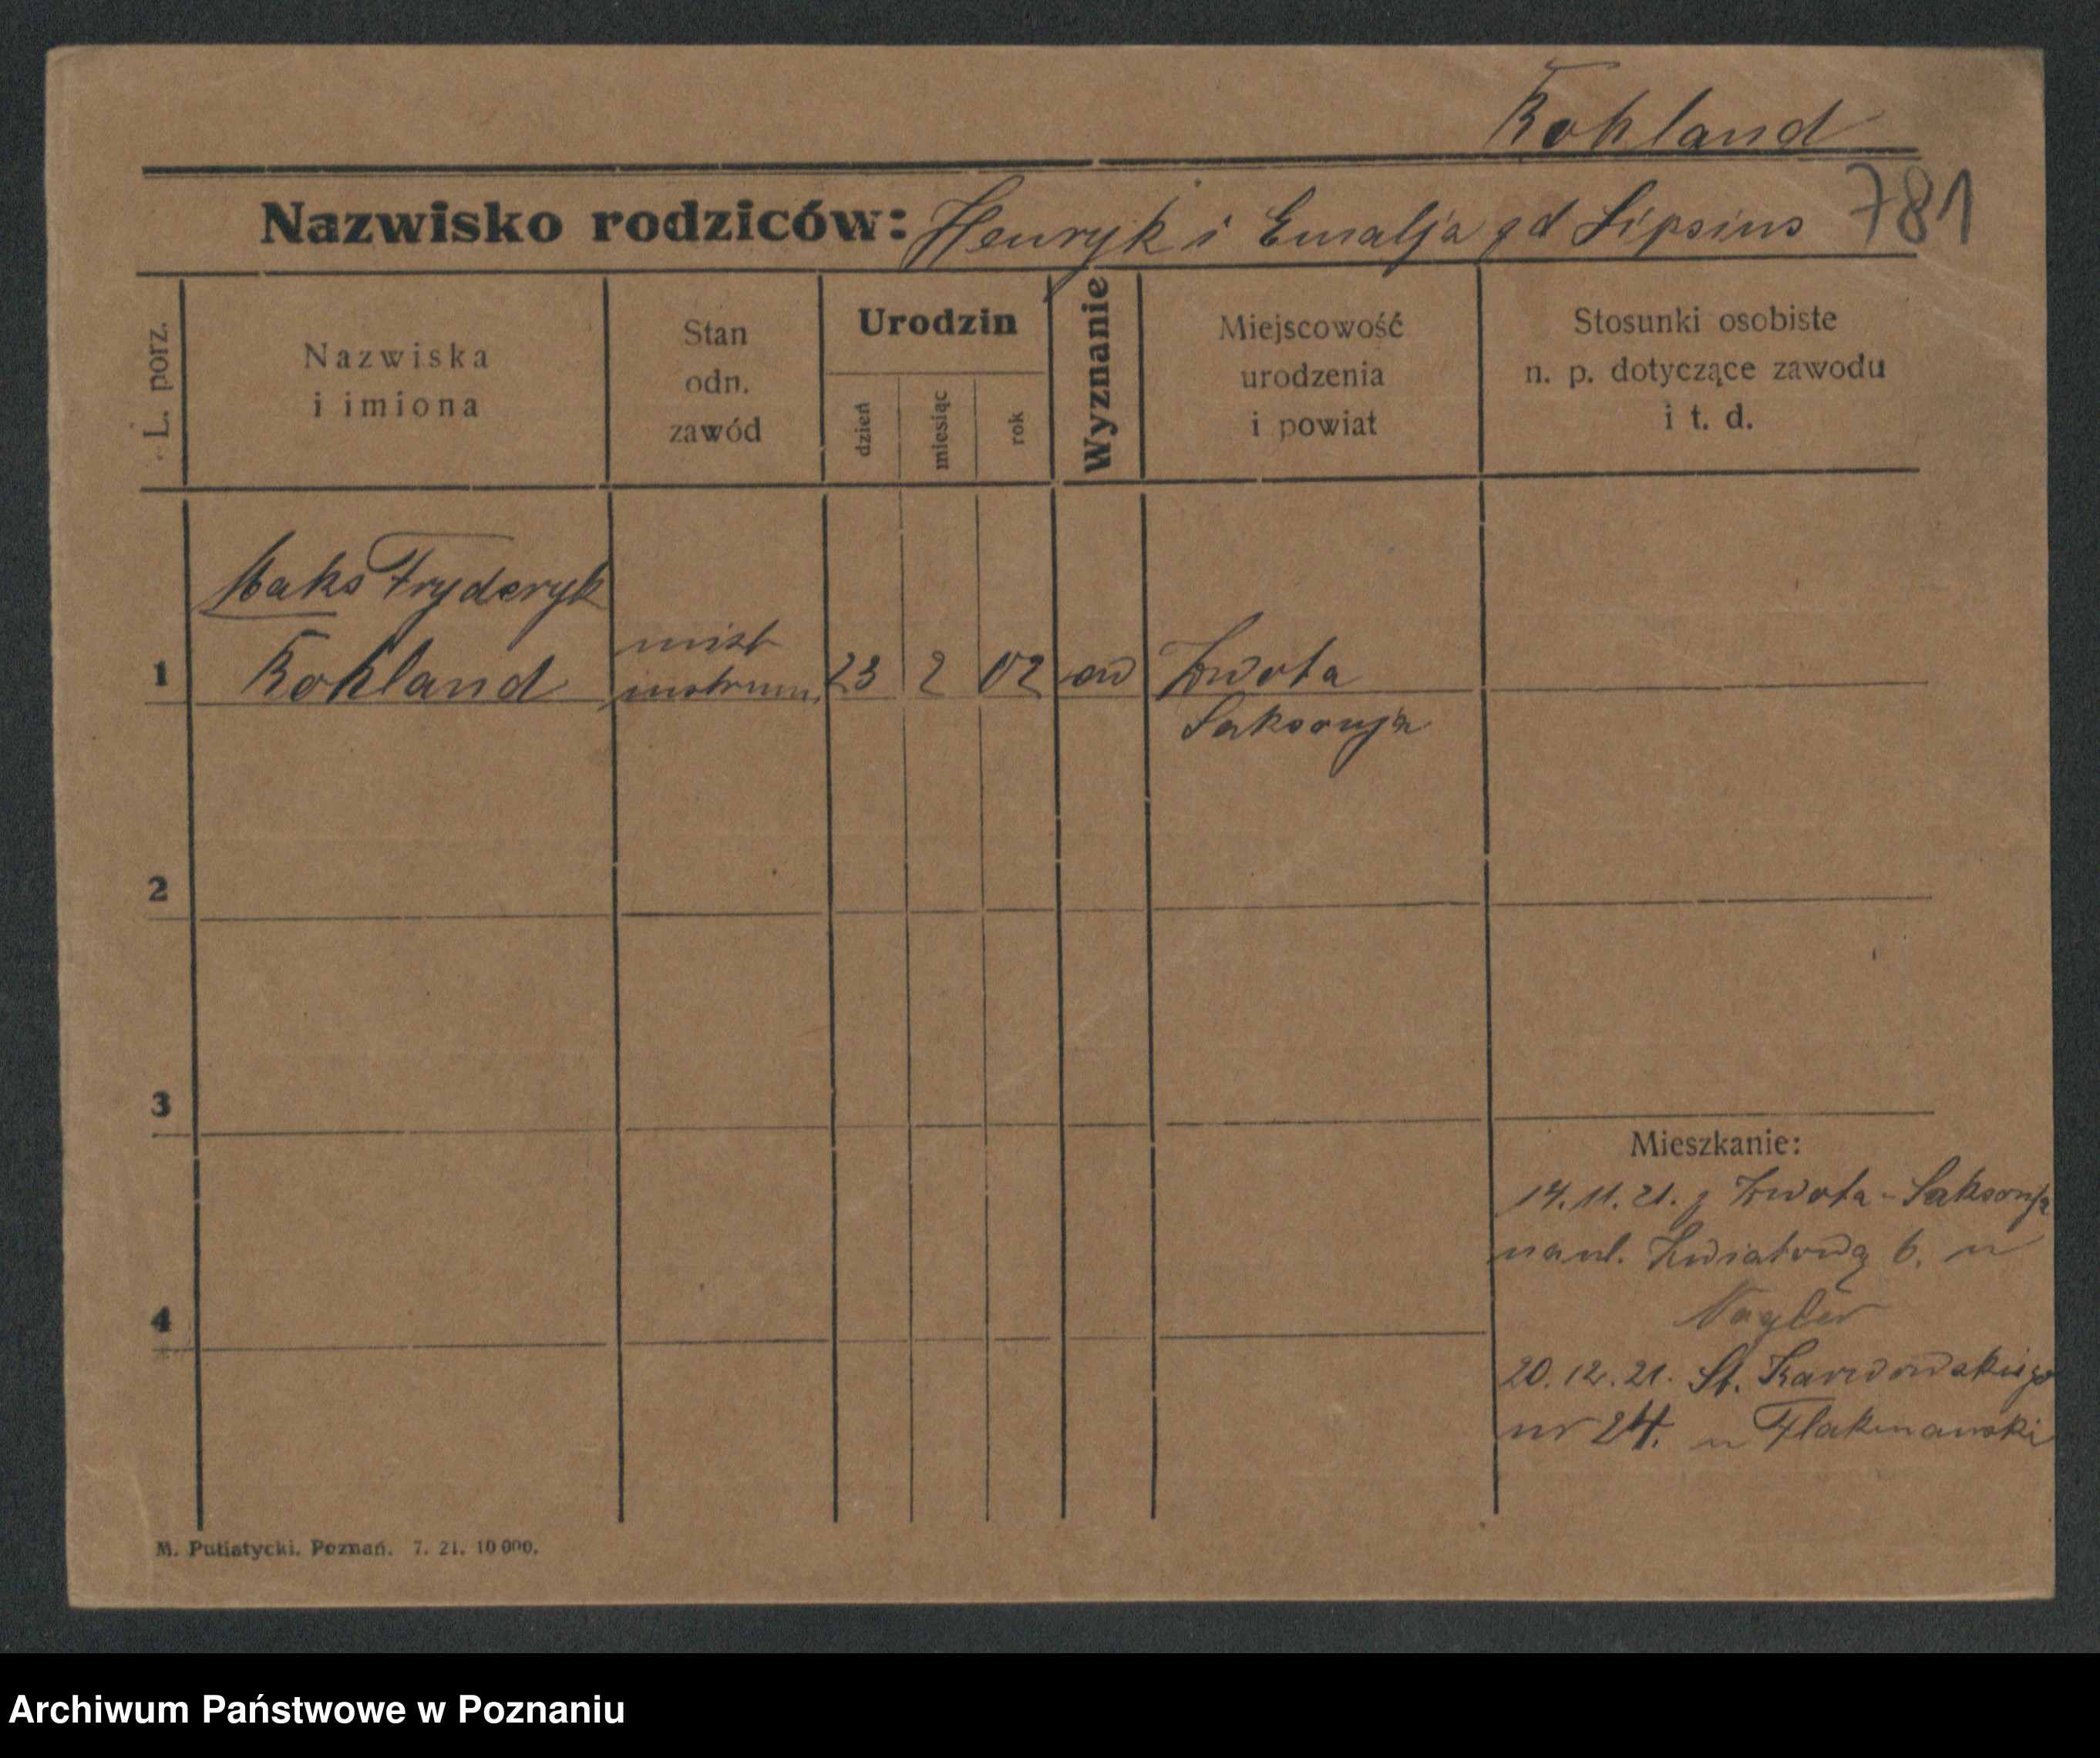 Rohland
Nazwisko rodziców: Henryk i Emalja gd Lipsius 781
L. porz.
Nazwiska
i imiona
Stan
odn.
zawód
Urodzin
dzień
miesiąc
rok
Wyznanie
Miejscowość
urodzenia
i powiat
Stosunki osobiste
n. p. dotyczące zawodu
i t. d.
Maks Fryderyk
1 Rohland mistr instrum. 23 2 02 ew Zwota
Saksonja
2
3
Mieszkanie:
14.11.21. z Zwota - Saksonja
na ul. Kwiatową 6. u
Nagler
4
20.12.21. St. Karwowskiego
nr 24. u Flakmanski
M. Putiatycki. Poznań. 7. 21. 10 000.
Archiwum Państwowe w Poznaniu